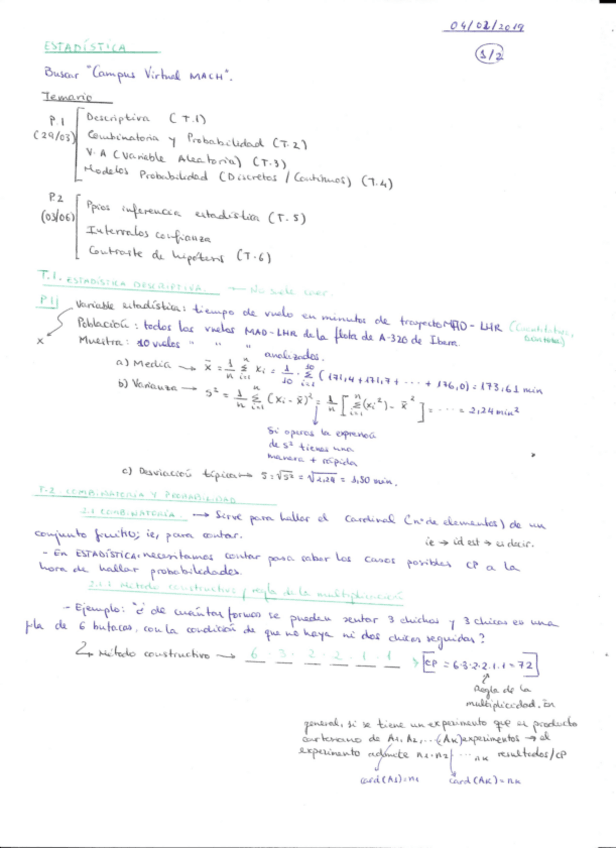 04/02/2019
1/2
ESTADÍSTICA
Buscar "Campus Virtual MACH".
Temario
P.1 (29/03)
Descriptiva (T.1)
Combinatoria y Probabilidad (T.2)
V.A (Variable Aleatoria) (T.3)
Modelos Probabilidad (Discretos / Continuos) (T.4)
P.2 (03/06)
Ppios inferencia estadística (T.5)
Intervalos confianza
Contraste de hipótesis (T.6)
T.1. ESTADÍSTICA DESCRIPTIVA → No suele caer.
P1 Variable estadística: tiempo de vuelo en minutos de trayecto MAD-LHR (Cuantitativa,
x Población: todos los vuelos MAD-LHR de la flota de A-320 de Iberia.
Muestra: 10 vuelos " " " analizados.
a) Media → x̄ = 1/n Σ xi = 1/10 · Σ (171,4+171,7+ ··· + 176,0) = 173,61 min
b) Varianza → s² = 1/n Σ (xi - x̄)² = 1/n [Σ(xi²) - x̄²] = ··· = 2,24 min²
Si operas la expresión
de s² tienes una
manera + rápida
c) Desviación típica → s = √s² = √2,24 = 1,50 min.
T.2 COMBINATORIA Y PROBABILIDAD
2.1 COMBINATORIA. → Sirve para hallar el cardinal (nº de elementos) de un
conjunto finito; ie, para contar.
ie → id est → es decir.
- En ESTADÍSTICA: necesitamos contar para saber los casos posibles CP a la
hora de hallar probabilidades.
2.1.1 Método constructivo y regla de la multiplicación
- Ejemplo: "¿de cuántas formas se pueden sentar 3 chichos y 3 chicas en una
fila de 6 butacas, con la condición de que no haya ni dos chicos seguidas?
→ Método constructivo → 6 · 3 · 2 · 2 · 1 · 1 → [CP = 6·3·2·2·1·1 = 72]
Regla de la
multiplicidad. En
general, si se tiene un experimento que es producto
cartesiano de A1, A2, ··· (AK) experimentos → el
experimento admite n1·n2 ··· nK resultados/CP
card(A1)=n1 card(AK)=nK